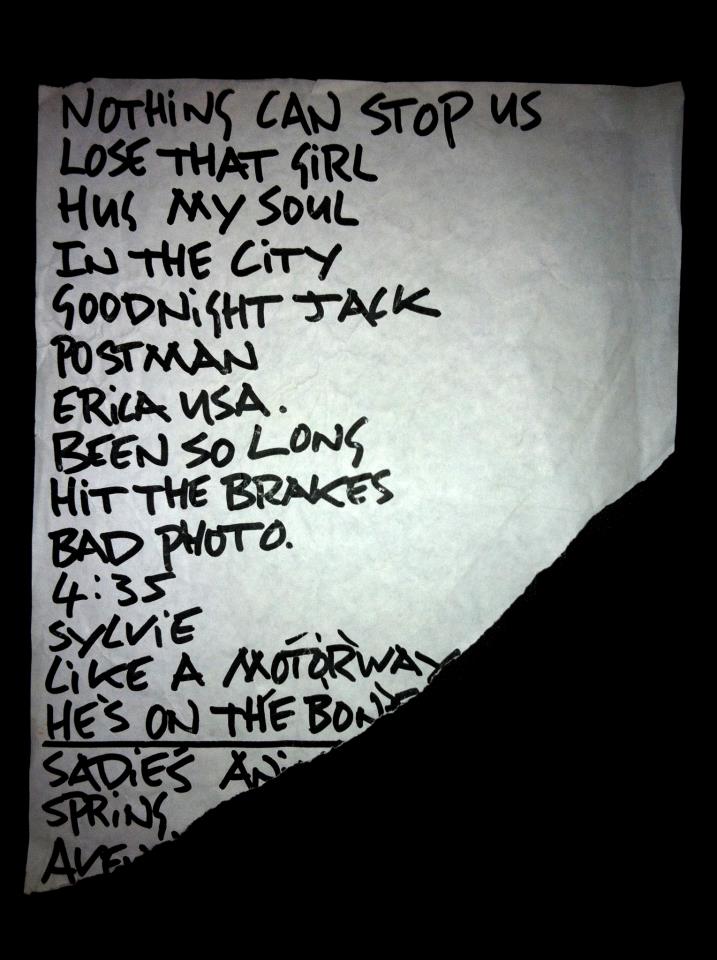 NOTHING CAN STOP US
LOSE THAT GIRL
HUG MY SOUL
IN THE CITY
GOODNIGHT JACK
POSTMAN
ERICA USA.
BEEN SO LONG
HIT THE BRAKES
BAD PHOTO.
4:35
SYLVIE
LIKE A MOTORWAY
HE'S ON THE
SADIE'S
SPRING